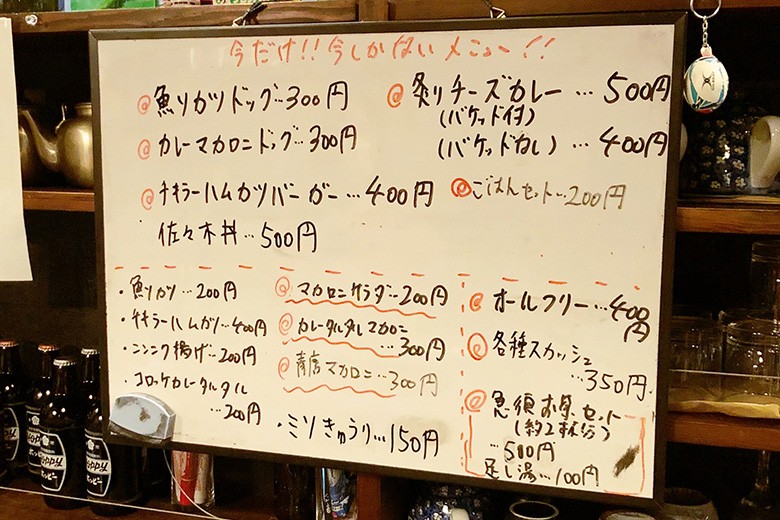 今だけ!! 今しかないメニュー!!
@魚リカツドッグ…300円
@カレーマカロニドッグ…300円
@チキラーハムカツバーガー…400円
佐々木丼…500円
@炙りチーズカレー…500円
(バケッド付)
(バケッドなし)…400円
@ごはんセット…200円
・魚リカツ…200円
・チキラーハムカツ…400円
・ニンニク揚げ…200円
・コロッケカレータルタル
…200円
@マカロニサラダ…200円
@カレータルタルマカロニ
…300円
マカロニ…300円
・ミソきゅうり…150円
@オールフリー…400円
@各種スカッシュ
…350円
@急須お茶セット
(約2杯分)
…500円
足し湯…100円
HOPPY
ホッピー